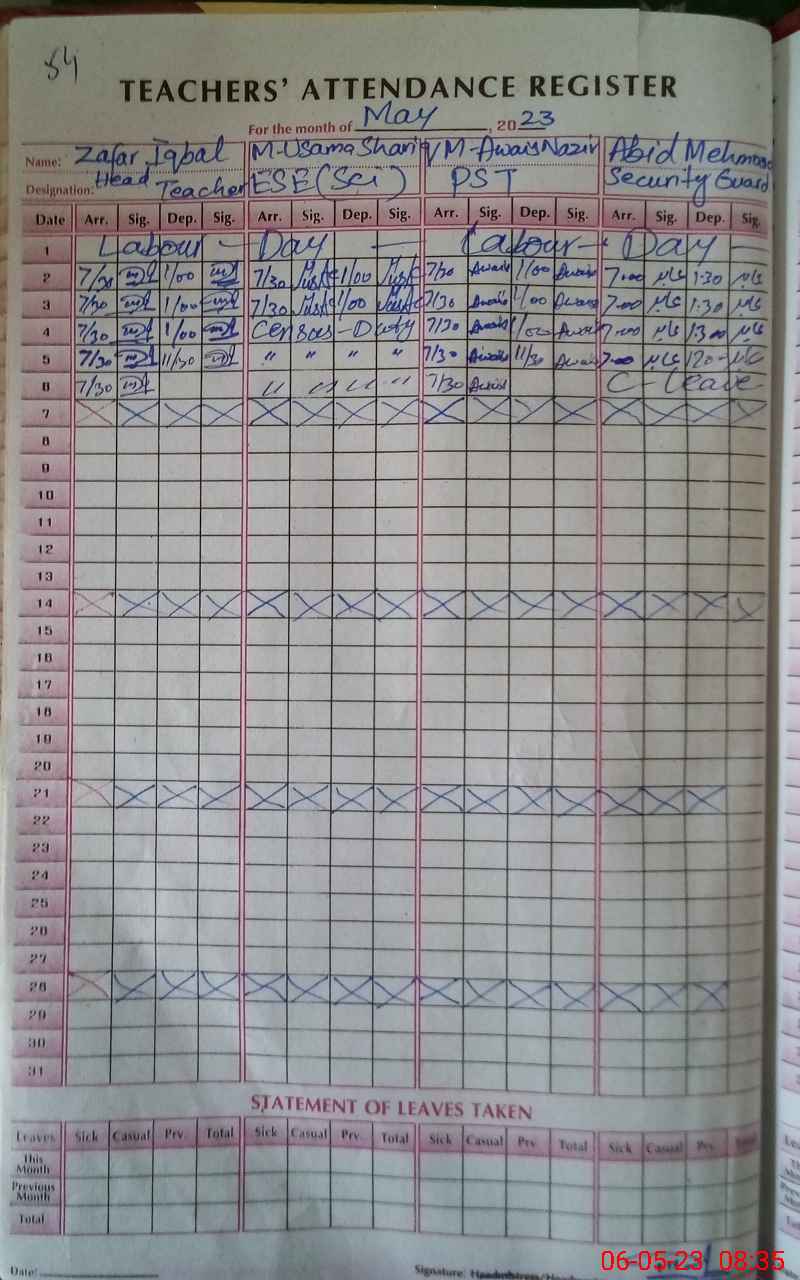 54
TEACHERS' ATTENDANCE REGISTER
For the month of May, 2023
Name: Zafar Iqbal M-Usama Shariq M-Awais Nazir Abid Mehmood
Designation: Head Teacher ESE(Sci) PST Security Guard
Date Arr. Sig. Dep. Sig. Arr. Sig. Dep. Sig. Arr. Sig. Dep. Sig. Arr. Sig. Dep. Sig.
1 Labour - Day - Labour - Day -
2 7/30 1/00 7/30 1/00 7/30 Awais 1/00 Awais 7-00 1-30
3 7/30 1/00 7/30 1/00 7/30 Awais 1/00 Awais 7-00 1:30
4 7/30 1/00 Census-Duty 7/30 Awais 1/00 Awais 7-00
5 7/30 11/30 " " " " 7/30 Awais 11/30 Awais 7-00
6 7/30 " " " " 7/30 Awais C-Leave
7
8
9
10
11
12
13
14
15
16
17
18
19
20
21
22
23
24
25
26
27
28
29
30
31
STATEMENT OF LEAVES TAKEN
Leaves Sick Casual Prv. Total Sick Casual Prv. Total Sick Casual Prv. Total Sick Casual Prv. Total
This Month
Previous Month
Total
Date: Signature:
06-05-23 08:35